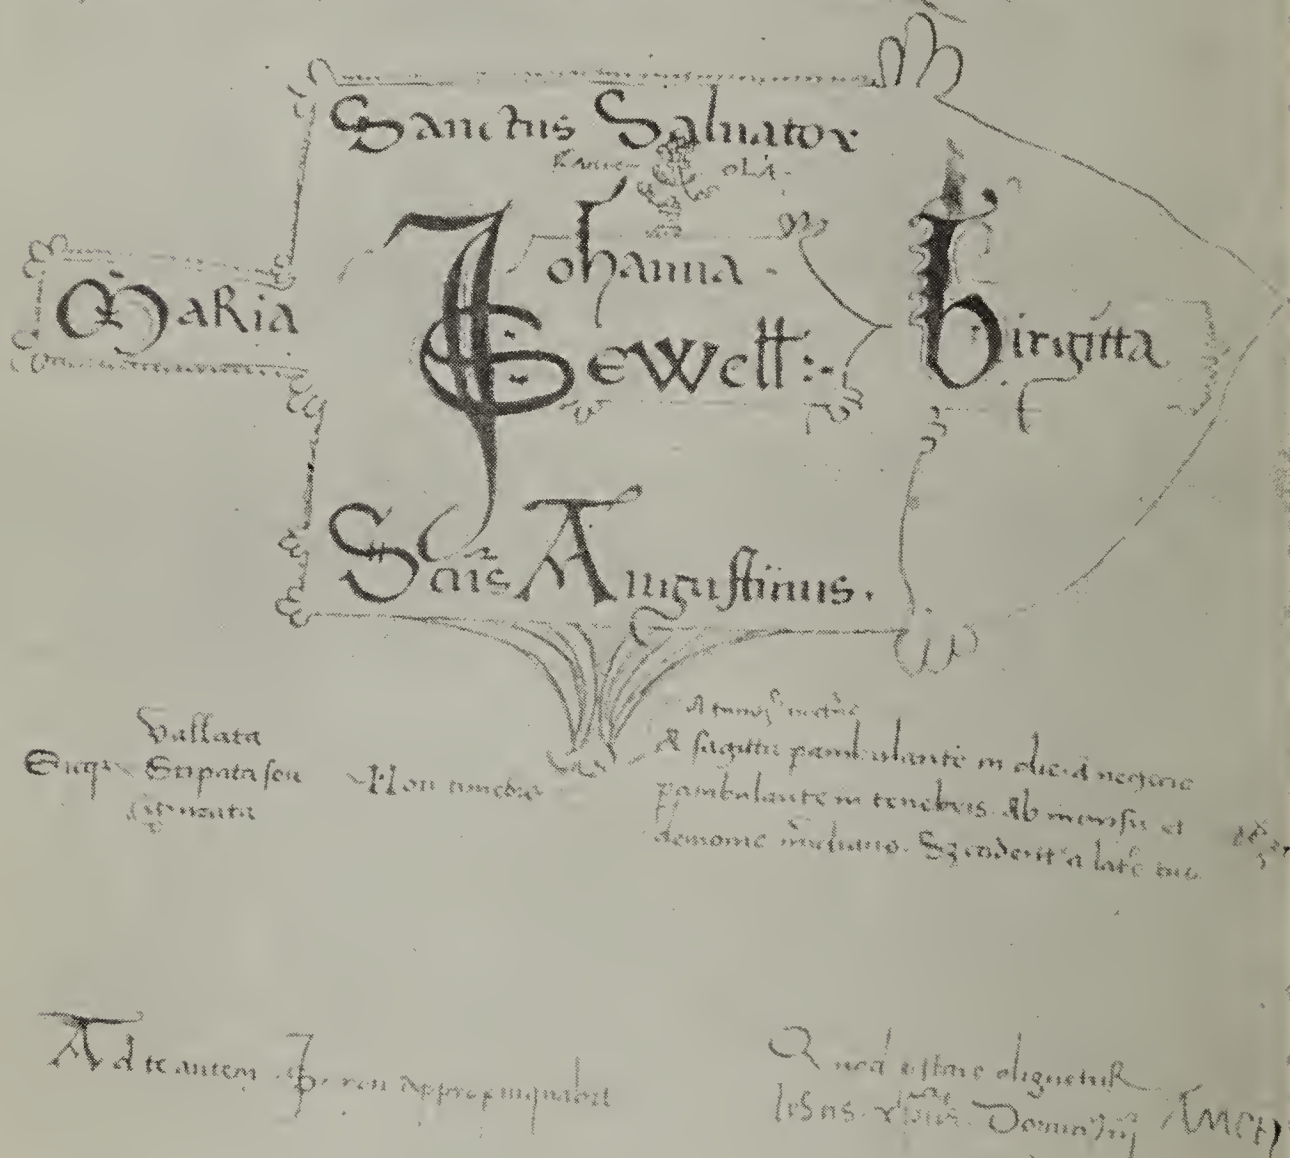 Sanctus Saluator
Johanna
Maria
Sewell :-
birgitta
Sc̄us Augustinus .
Vallata
Sicq
Stipata seu
Non timebis
A timore nocturno
A sagitta volante in die. A negocio
perambulante in tenebris. Ab incursu et
demonio meridiano. Cadent a latere tuo
Ad te autem non appropinquabit
Quod prestare dignetur
Ihesus xpus Dominus Amen